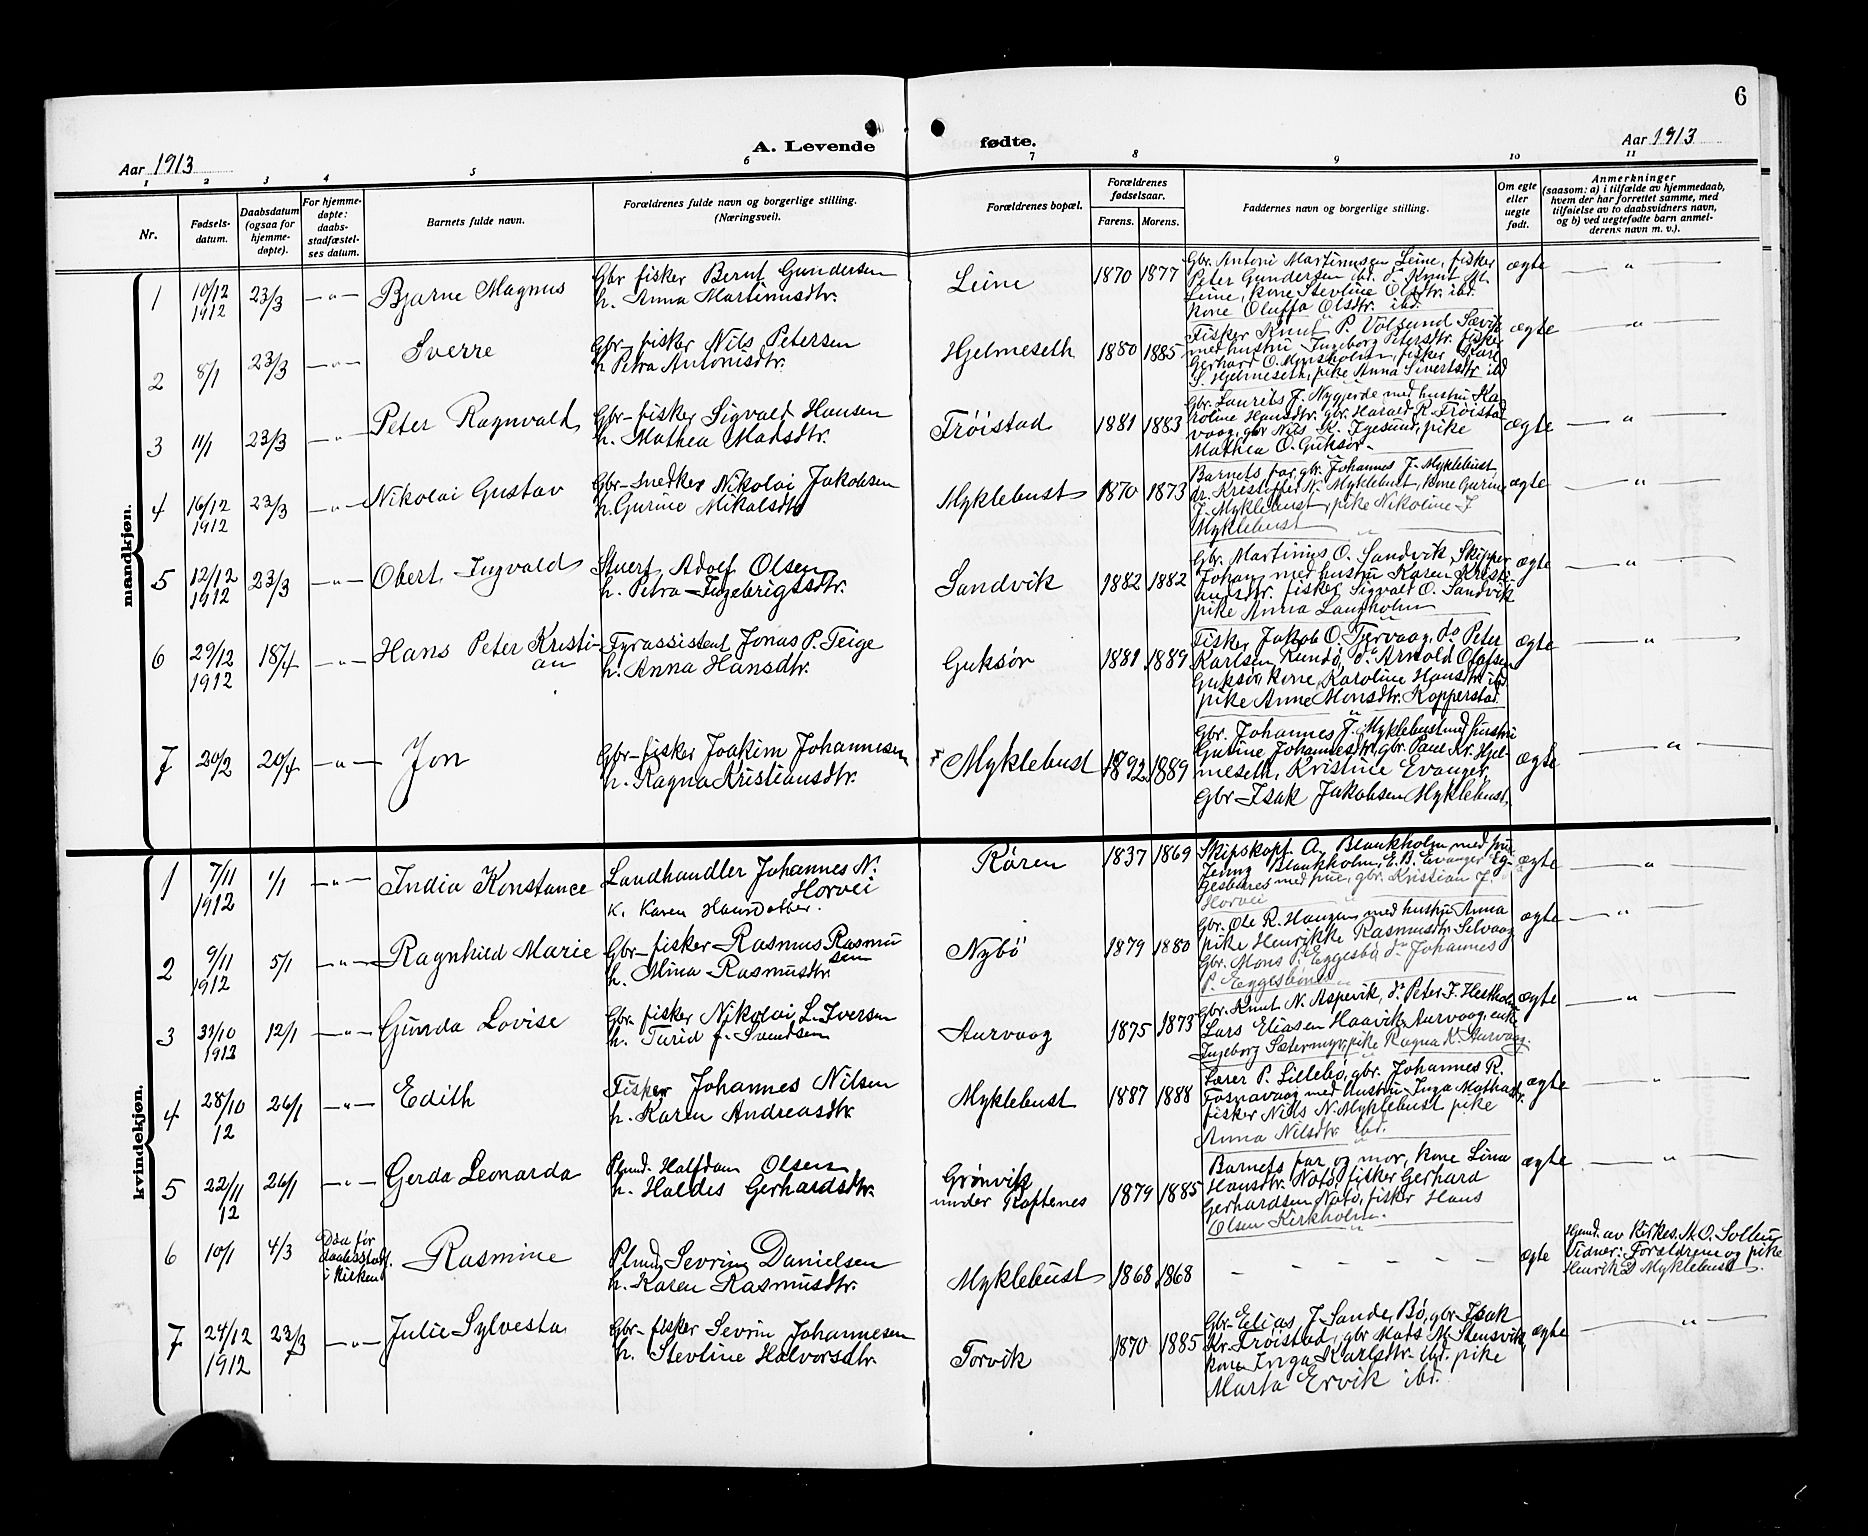 6
Aar 1913
A. Levende
fødte.
Aar 1913
1 2 3 4 5 6 7 8 9 10 11
Nr.
Fødsels-
datum.
Daabsdatum
(ogsaa for
hjemme-
døpte).
For hjemme-
døpte:
daabs-
stadfæstel-
ses datum.
Barnets fulde navn.
Forældrenes fulde navn og borgerlige stilling.
(Næringsvei).
Forældrenes bopæl.
Forældrenes
fødselsaar.
Farens. Morens.
Faddernes navn og borgerlige stilling.
Om egte
eller
uegte
født.
Anmerkninger
(saasom: a) i tilfælde av hjemmedaab,
hvem der har forrettet samme, med
tilføielse av to daabsvidners navn,
og b) ved uegtefødte barn anmel-
derens navn m. v.).
mandkjøn.
1 10/12 1912 23/3 — " — Bjarne Magnus
Gbr fisker Bernt Gundersen
h. Anna Martinusdtr.
Leine 1870 1877
Gbr. Antoni Martinussen Leine, fisker
Peter Gundersen ibd. do Knut M.
Leine, kone Stevline Olsdtr. ibd.
kone Oluffa Olsdtr. ibd.
ægte — " —
2 8/1 23/3 — " — Sverre
Gbr. fisker Nils Petersen
h Petra Antonisdtr.
Hjelmeseth 1880 1885
Fisker Knut P. Volsund Sævik
med hustru Ingeborg Petersdtr. fisker
Gerhard O. Mansholm, fisker Kare
S. Hjelmeseth, pike Anna Sivertsdtr ibd
ægte — " —
3 11/1 23/3 — " — Peter Ragnvald
Gbr-fisker Sigvald Hansen
h. Mathea Madsdtr.
Frøistad 1881 1883
Gbr. Laurits J. Nygjerde med hustru Ka-
roline Hansdtr. gbr. Harald K. Frøistad
vaag, gbr Nils K. Igesund, pike
Mathea O. Guksør
ægte — " —
4 16/12 1912 23/3 — " — Nikolai Gustav
Gbr-snedker Nikolai Jakobsen
h. Gurine Nikolsdtr
Myklebust 1870 1873
Barnets far, gbr. Johannes J. Myklebust
Kristoffer N. Myklebust, kone Gurine
J. Myklebust, pike Nikoline J
Myklebust
ægte — " —
5 12/12 1912 23/3 — " — Obert Ingvald
Stuert Adolf Olsen
h. Petra Ingebrigtsdtr.
Sandvik 1882 1882
Gbr. Martinus O. Sandvik, Skipper
Johan med hustru Karen Kristi-
ansdtr. fisker Sigvald O. Sandvik
pike Anna Langholm
ægte — " —
6 29/12 1912 18/4 — " — Hans Peter Kristi-
an
Fyrassistent Jonas P. Teige
h. Anna Hansdtr.
Guksør 1881 1889
Fisker Jakob O. Tjervaag, do Peter
Karlsen Rundø, do Arnold Olafsen
Guksør, kone Karoline Hansdtr. ibd.
pike Anne Monsdtr. Kopperstad
ægte — " —
7 20/2 20/4 — " — Jon
Gbr-fisker Joakim Johannesen
h. Ragna Kristiansdtr.
Myklebust 1892 1889
Gbr. Johannes J. Myklebust med hustru
Gurine Johannesdtr, gbr. Paul Kr. Hjel-
meseth, Kristine Evanger,
Gbr Isak Jakobsen Myklebust.
ægte — " —
kvindekjøn.
1 7/11 1912 1/1 — " — India Konstance
Landhandler Johannes N.
Horvei
k. Karen Hansdatter.
Røren 1837 1869
Skipskapt. A. Blankholm med hu-
Jenny Blankholm, E. B. Evanger Eg-
gesbønes med frue, gbr. Kristian J.
Horvei
ægte — " —
2 9/11 1912 5/1 — " — Ragnhild Marie
Gbr-fisker Rasmus Rasmu
sen
h. Mina Rasmusdtr.
Nybø 1879 1880
Gbr. Ole R. Haugen med hustru Anna
pike Henrikke Rasmusdtr. Selvaag
Gbr. Mons P. Eggesbø, do Johannes
P. Eggesbønes
ægte — " —
3 31/10 1912 12/1 — " — Gunda Lovise
Gbr. fisker Nikolai L. Iversen
h. Turid f. Svendsen
Aurvaag 1875 1873
Gbr. Knut N. Aspevik, do Peter J. Hestholm
Lars Eliasen Haavik, Aurvaag, enke
Ingeborg Sætermyr, pike Ragna K. Aurvaag.
ægte — " —
4 28/10 12 26/1 — " — Edith
Fisker Johannes Nilsen
h. Karen Andreasdtr.
Myklebust 1887 1888
Lærer P. Lillebø, gbr. Johannes R.
Fosnavaag med hustru Inga Mathiasdtr.
fisker Nils N. Myklebust pike
Anna Nilsdtr ibd.
ægte — " —
5 22/11 12 26/1 — " — Gerda Leonarda
Plmd. Halfdan Olsen
h. Haldis Gerhardsdtr.
Grønvik
under Koptenes 1879 1885
Barnets far og mor, kone Lina
Hansdtr. Notø, fisker Gerhard
Gerhardsen Notø, fisker Hans
Olsen Kirkholm.
ægte — " —
6 10/1 4/3 Død før
daabsstadf.
i kirken Rasmine
Plmd. Sevrin Danielsen
h. Karen Rasmusdtr.
Myklebust 1868 1868
– – – – – –
ægte
Hjmd. av Kirkes. M. O. Soltun
Vidner: Forældrene og pike
Henrik D Myklebust.
7 24/12 1912 23/3 — " — Julie Sylvesta
Gbr-fisker Sevrin Johannesen
h. Stevline Halvorsdtr.
Torvik 1870 1885
Gbr. Elias J. Sande, Bø, gbr. Isak
Kr. Frøistad, gbr Mats M. Stensvik,
kone Inga Karlsdtr. ibd. pike
Marta Ervik ibd.
ægte — " —